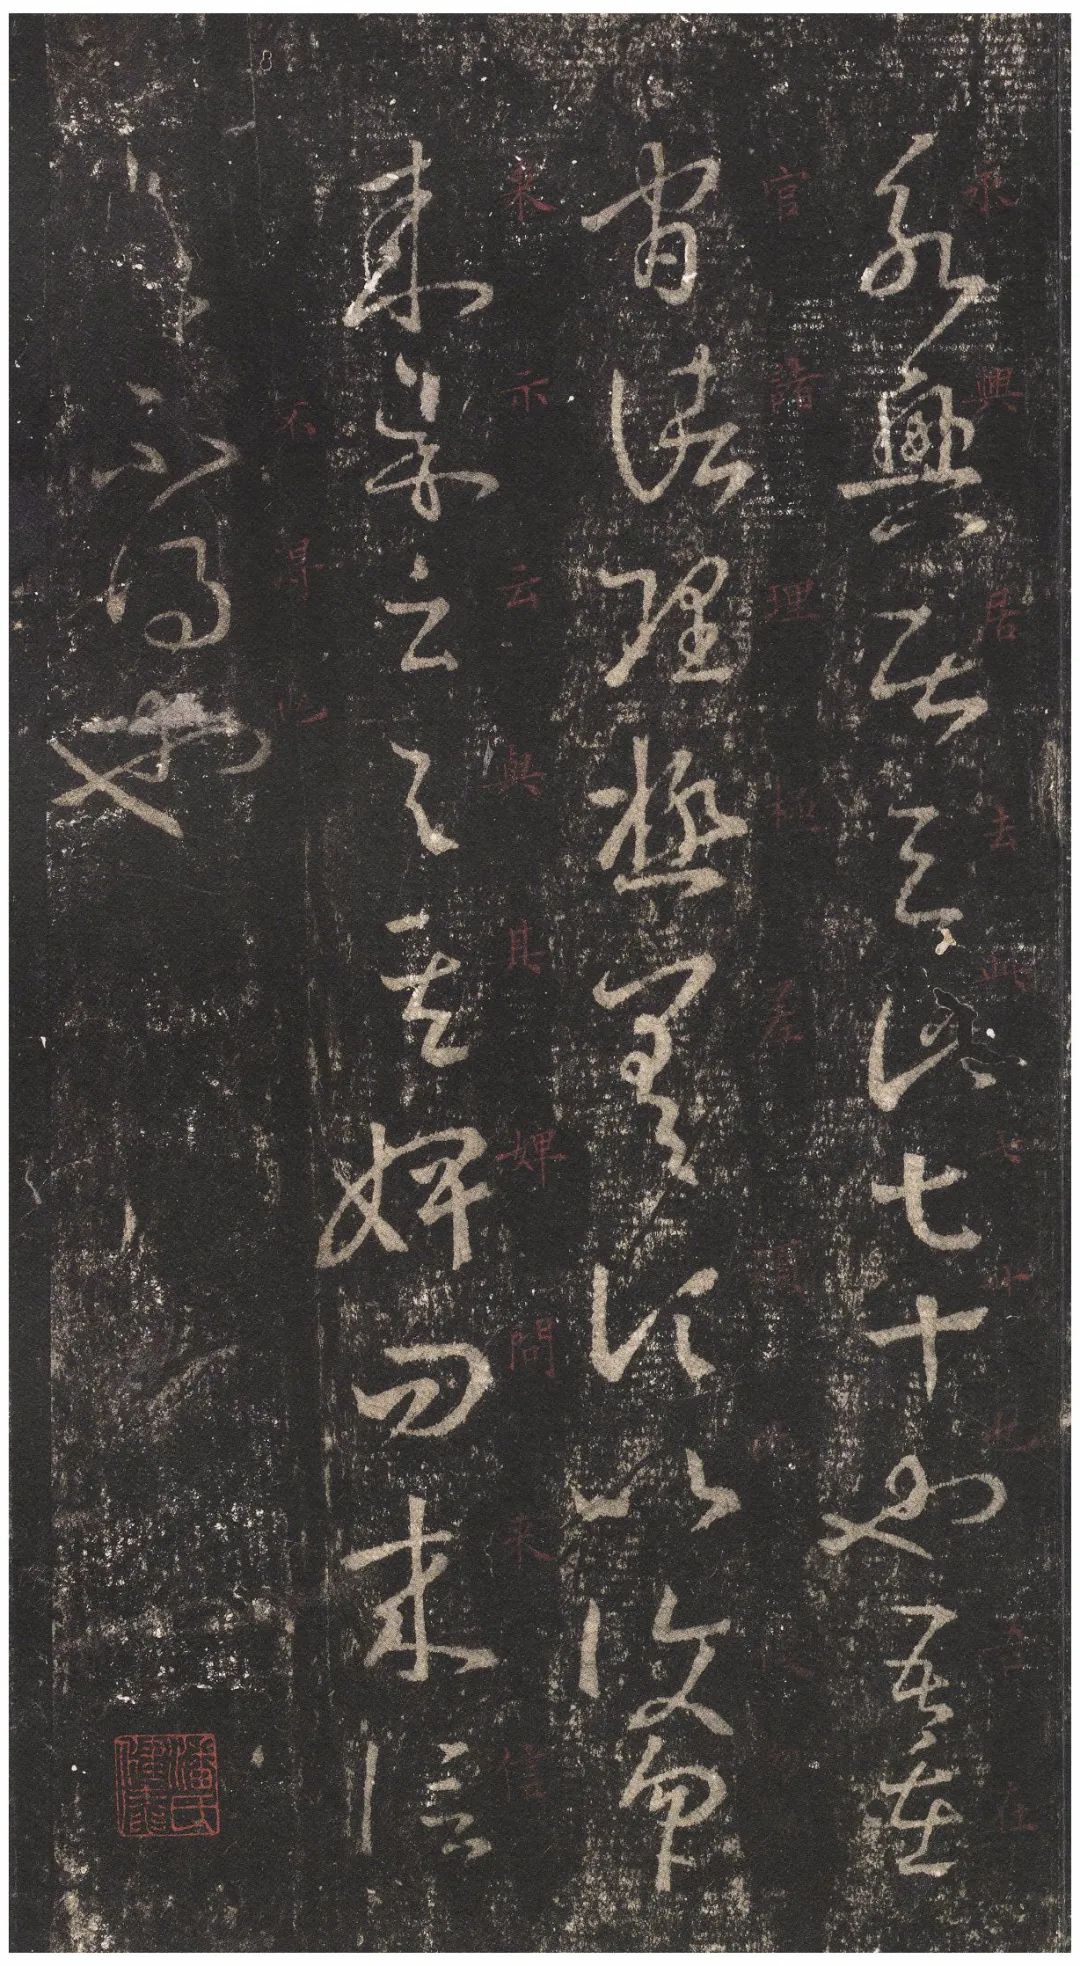 永興居去此七十也吾在
官諸理極差頃比復勿
來示云與其婢問來信
不得也